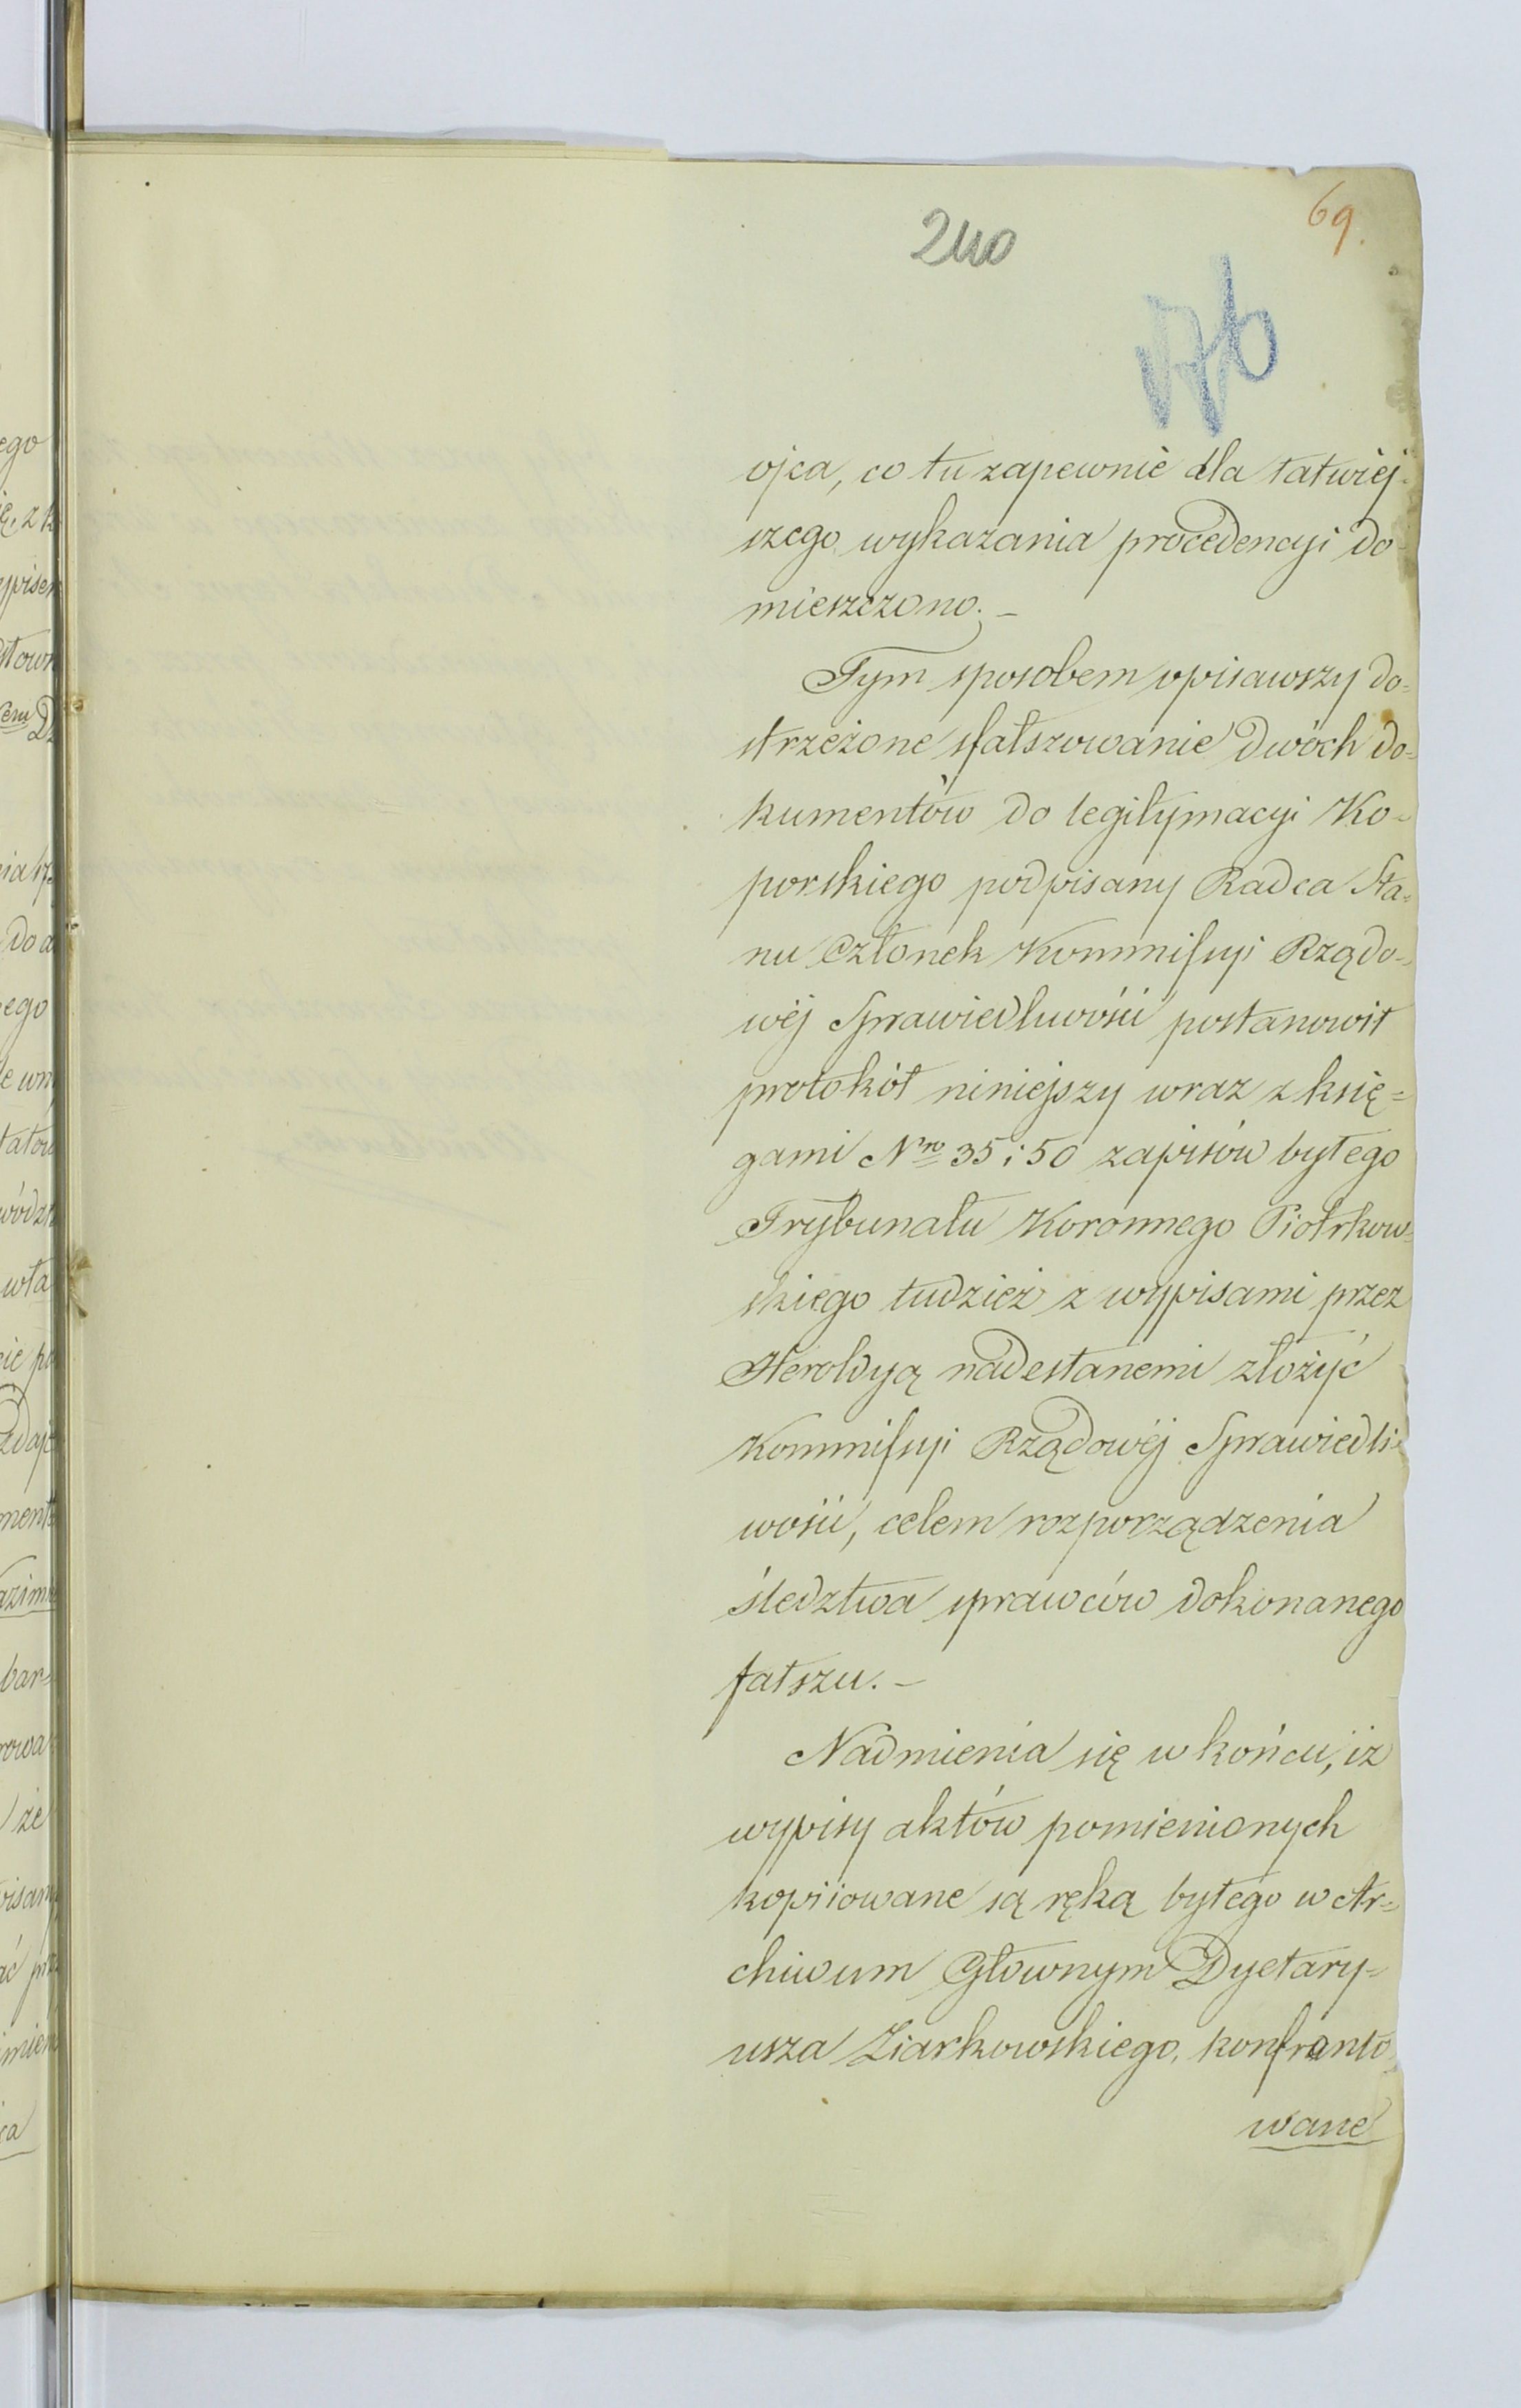 69.
240
ojca, co tu zapewnie dla łatwiej-
szego wykazania procedencyi do-
mieszczono. –
Tym sposobem opisawszy do=
strzeżone sfałszowanie dwóch do=
kumentów do legitymacyi Ko-
porskiego podpisany Radca Sta=
nu Członek Kommissyi Rządo=
wéj Sprawiedliwości postanowił
protokół niniejszy wraz z księ=
gami Nro 35 i 50 zapisów byłego
Trybunału Koronnego Piotrkow=
skiego tudzież z wypisami przez
Heroldyą nadesłanemi złożyć
Kommissyi Rządowéj Sprawiedli=
wości, celem rozporządzenia
śledztwa sprawców dokonanego
fałszu. –
Nadmienia się w końcu, iż
wypisy aktów pomienionych
kopiiowane są ręką byłego w Ar=
chiwum Głównym Dyetary=
usza Ziarkowskiego, konfronto
wane